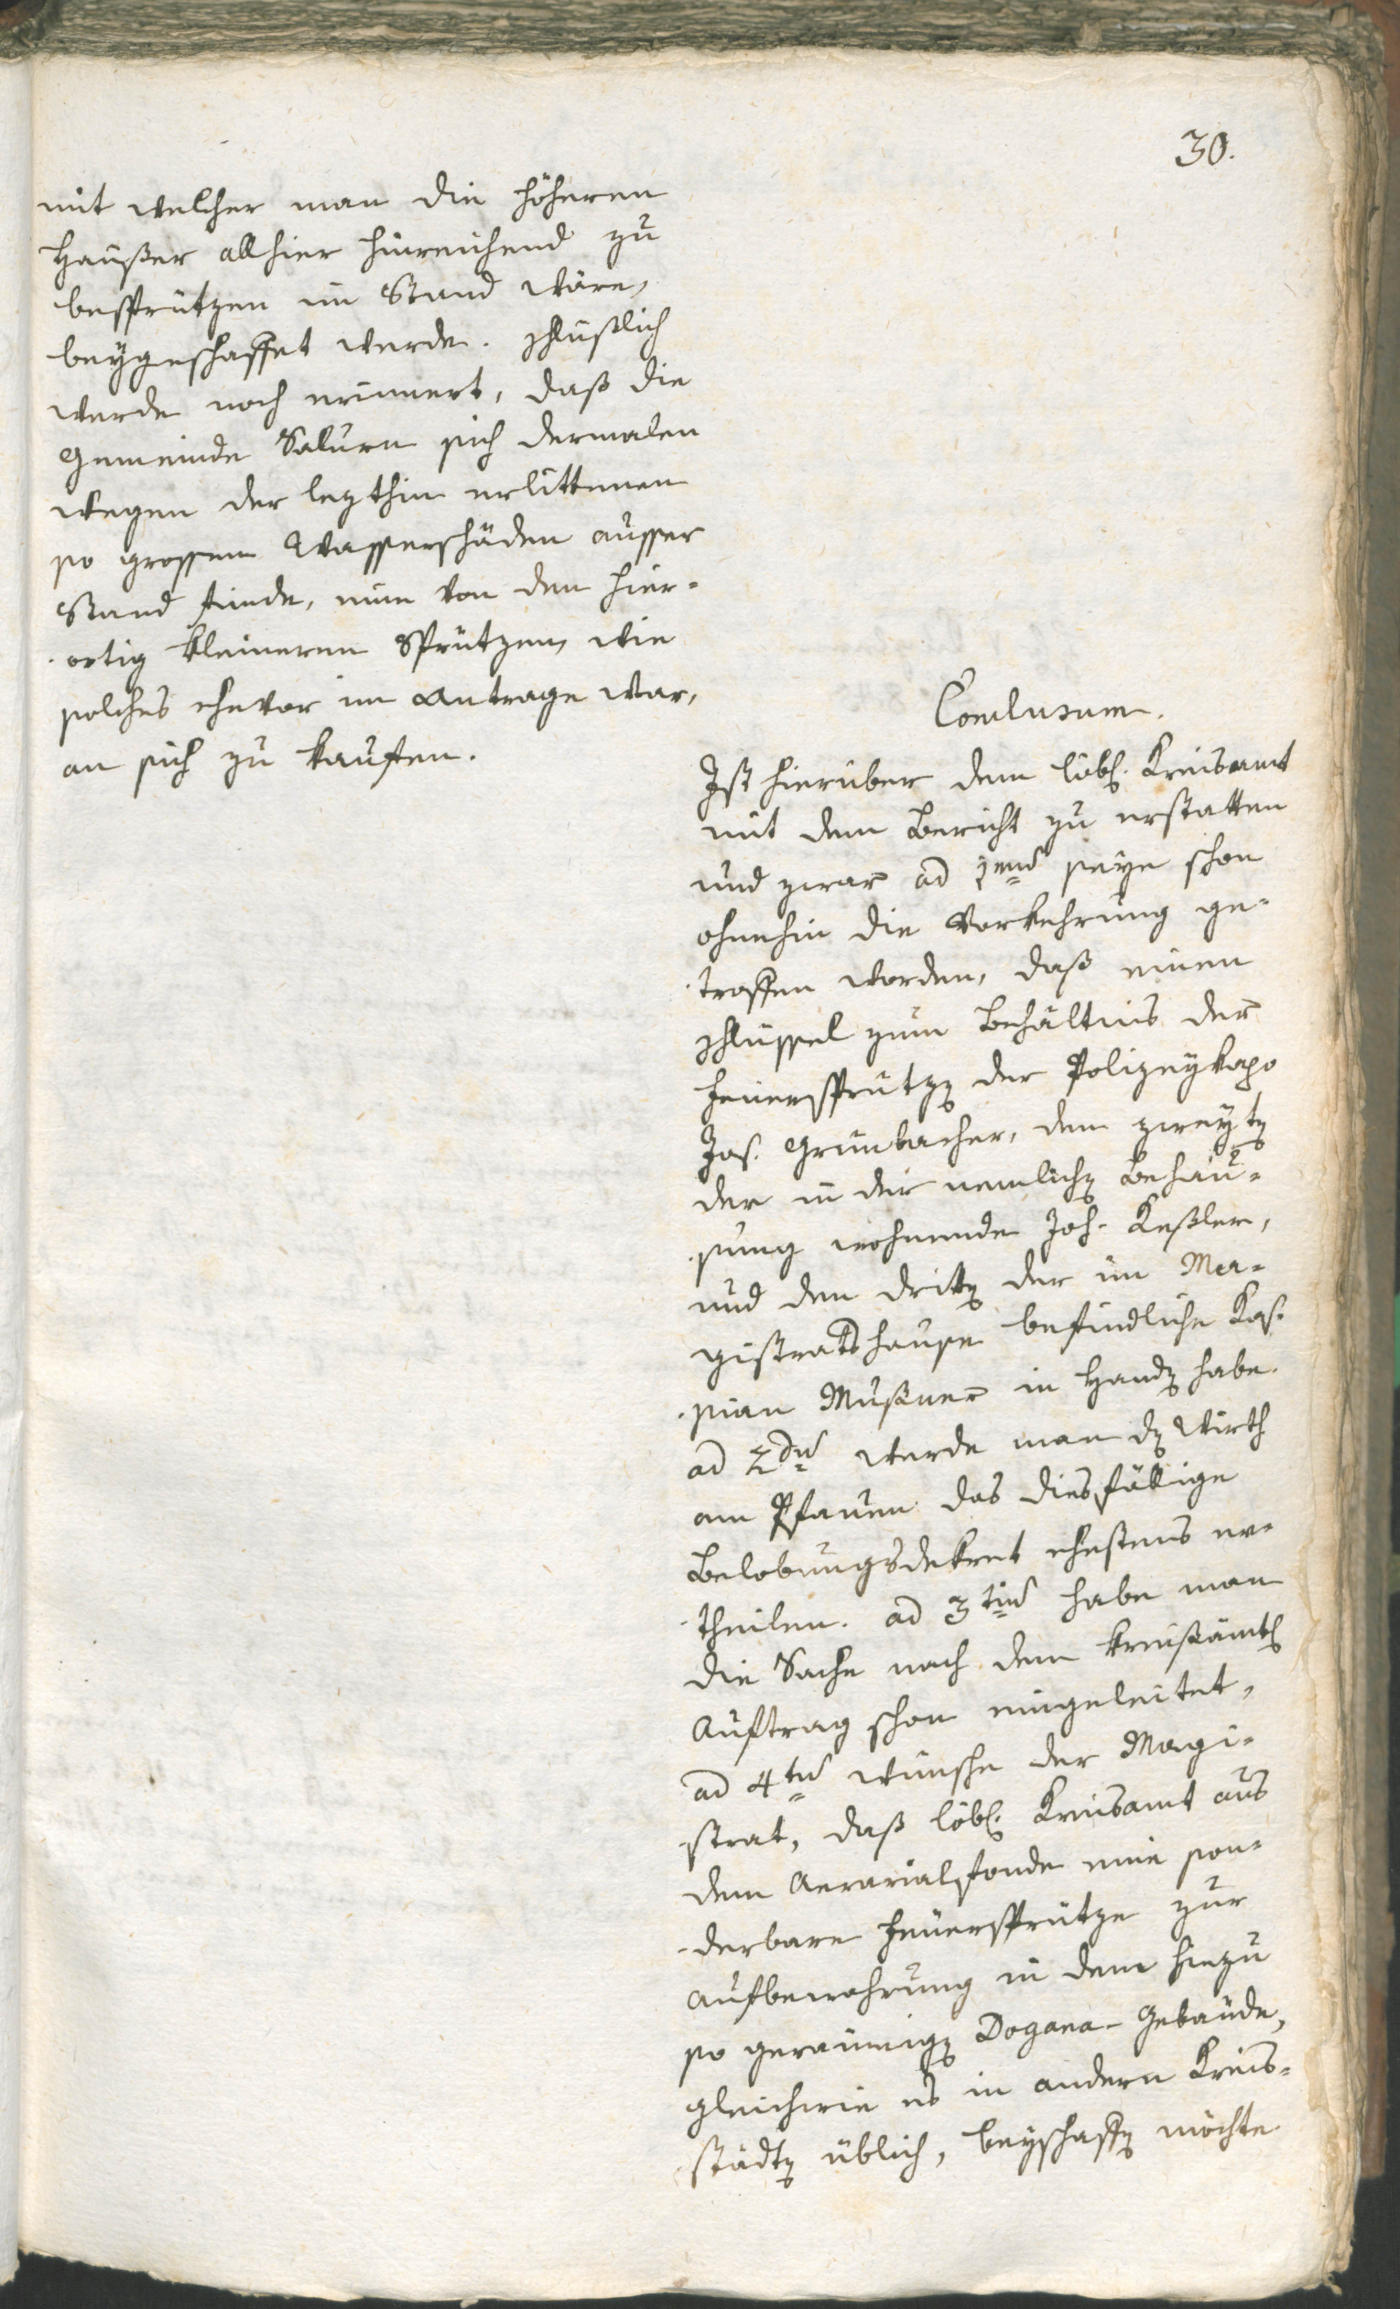 30.
mit welcher man die höheren
Haüßer allhier hinreichend zu
besprützen im Stand wäre,
beygeschaffet werde. Schlüßlich
werde noch erinnert, daß die
Gemeinde Salurn sich dermalen
wegen der lezthin erlittenen
so grossen Wasserschäden ausser
Stand finde, eine von den hier-
ortig kleineren Sprützen, wie
solches ehevor im Antrage war,
an sich zu kaufen.
Conclusum.
Ist hierüber dem löbl. Kreisamt
mit dem Bericht zu erstatten
und zwar ad 1mũ seye schon
ohnehin die Vorkehrung ge-
troffen worden, daß einen
Schlüssel zum Behältnis der
Feuersprützen der Polizeykapo
Jos. Grünbacher, den zweyten
der in der nemlichen Behau-
sung wohnende Joh. Keßler,
und den dritten der im Ma-
gistratshause befindliche Kas-
sian Mußner in Handen habe.
ad 2dũ werde man den Wirth
am Pfauen das diesfällige
Belobungsdekret ehestens er-
theilen. ad 3tiũ habe man
die Sache nach dem kreisämtl.
Auftrag schon eingeleitet,
ad 4tũ wünsche der Magi-
strat, daß löbl. Kreisamt aus
dem Aerarialfonde eine son-
derbare Feuersprütze zur
Aufbewahrung in dem hiezu
so geräumigen Dogana-Gebäude,
gleichwie es in andern Kreis-
städten üblich, beyschaffen möchte